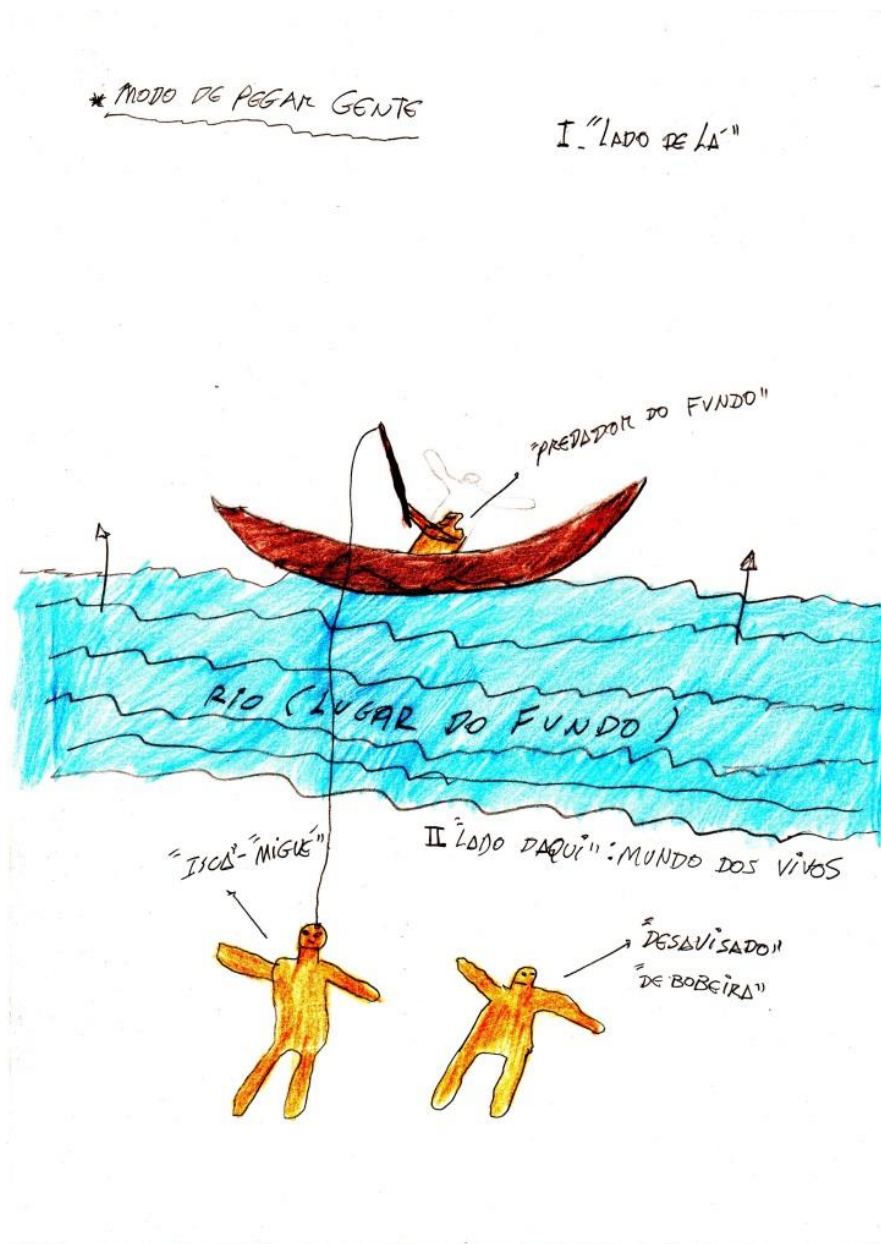 * MODO DE PEGAR GENTE
I - "LADO DE LÁ"
"PREDADOR DO FUNDO"
RIO (LUGAR DO FUNDO)
"ISCA" - "MIGUÉ"
II "LADO DAQUI": MUNDO DOS VIVOS
"DESAVISADO"
"DE BOBEIRA"